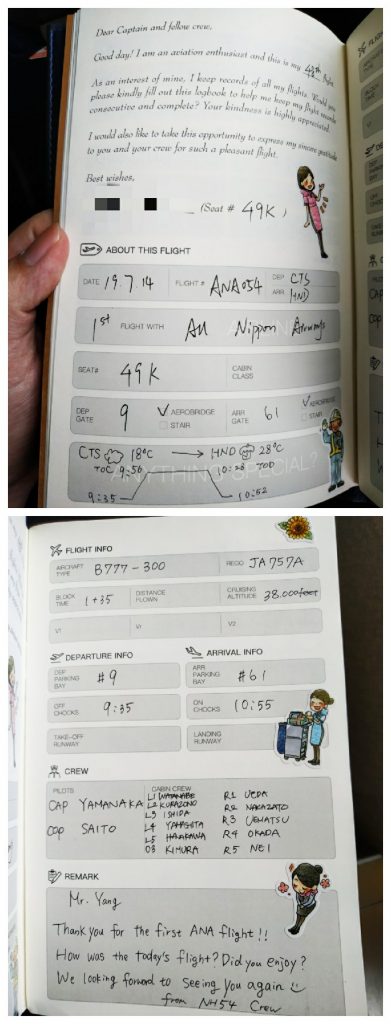 Dear Captain and fellow crew,
Good day! I am an aviation enthusiast and this is my 48th flight.
As an interest of mine, I keep records of all my flights. Would you
please kindly fill out this logbook to help me keep my flight records
consecutive and complete? Your kindness is highly appreciated.
I would also like to take this opportunity to express my sincere gratitude
to you and your crew for such a pleasant flight.
Best wishes,
(Seat # 49K )
ABOUT THIS FLIGHT
DATE 19.7.14 FLIGHT # ANA054 DEP CTS
ARR HND
1st FLIGHT WITH All Nippon Airways
SEAT# 49K CABIN
CLASS
DEP
GATE 9 AEROBRIDGE
STAIR ARR
GATE 61 AEROBRIDGE
STAIR
CTS 18°C → HND 28°C
TOC 9:56 10:28 TOD
ANYTHING SPECIAL?
9:35 10:52
FLIGHT INFO
AIRCRAFT
TYPE B777-300 REGO JA757A
BLOCK
TIME 1+35 DISTANCE
FLOWN CRUISING
ALTITUDE 38.000feet
V1 Vr V2
DEPARTURE INFO ARRIVAL INFO
DEP
PARKING
BAY #9 ARR
PARKING
BAY #61
OFF
CHOCKS 9:35 ON
CHOCKS 10:55
TAKE-OFF
RUNWAY LANDING
RUNWAY
CREW
PILOTS CABIN CREW
CAP YAMANAKA
COP SAITO
L1 WATANABE R1 UEDA
L2 KURAZONO R2 NAKAZATO
L3 ISHIDA R3 UEMATSU
L4 YAMASHITA R4 OKADA
L5 HARAKAWA R5 NEI
O3 KIMURA
REMARK
Mr. Yang
Thank you for the first ANA flight!!
How was the today's flight? Did you enjoy?
We looking forward to seeing you again
from NH54 Crew